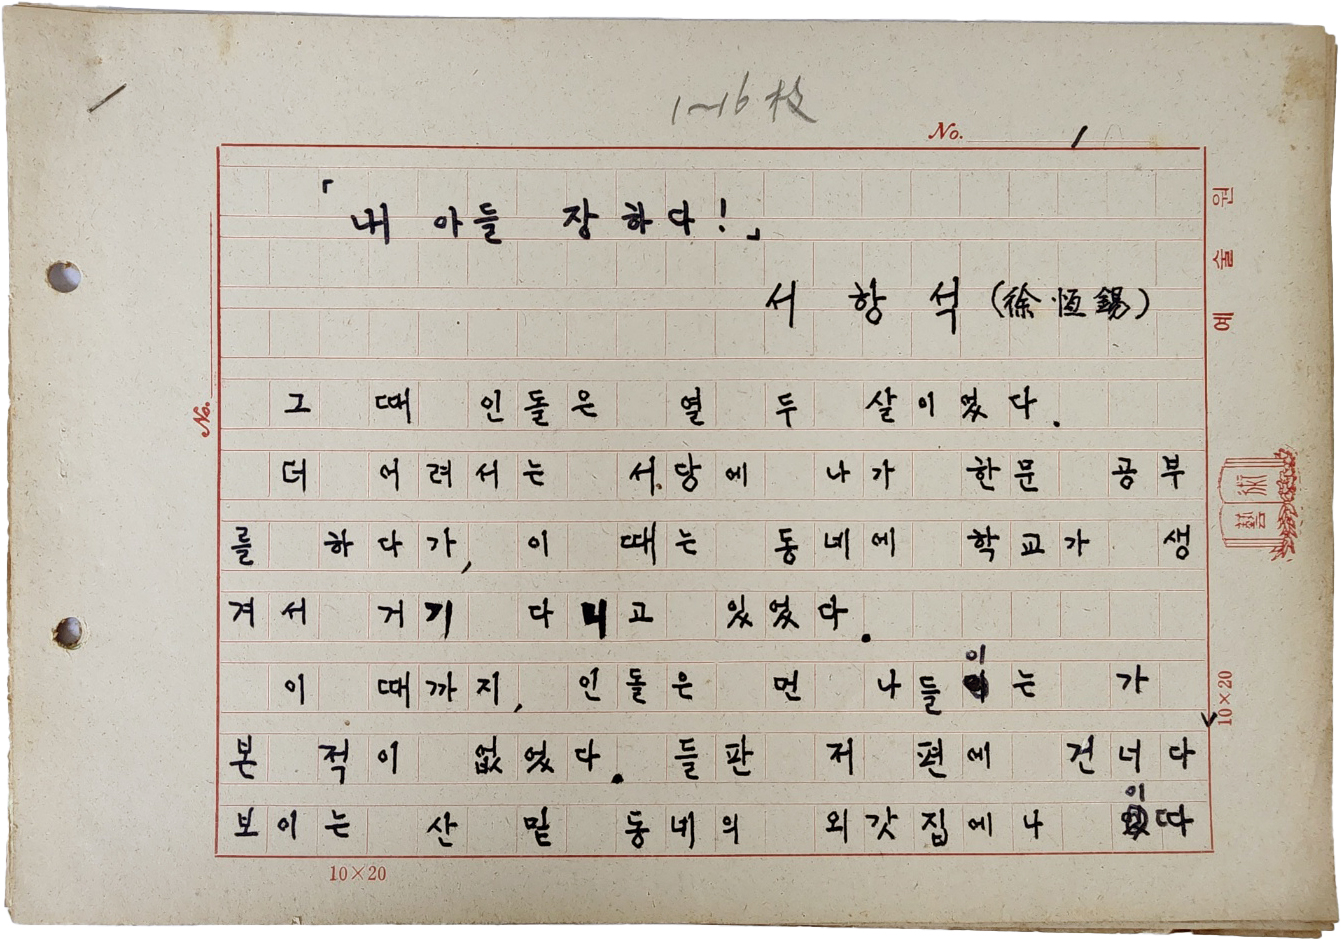 1~16枚
No. 1
「내 아들 장하다!」
서 항 석 (徐恒錫)
그 때 인돌은 열 두 살이었다.
더 어려서는 서당에 나가 한문 공부
를 하다가, 이 때는 동네에 학교가 생
겨서 거기 다니고 있었다.
이 때까지, 인돌은 먼 나들이는 가
본 적이 없었다. 들판 저 편에 건너다
보이는 산 밑 동네의 외갓집에나 이따
No.
예술원
藝術
10×20
10×20